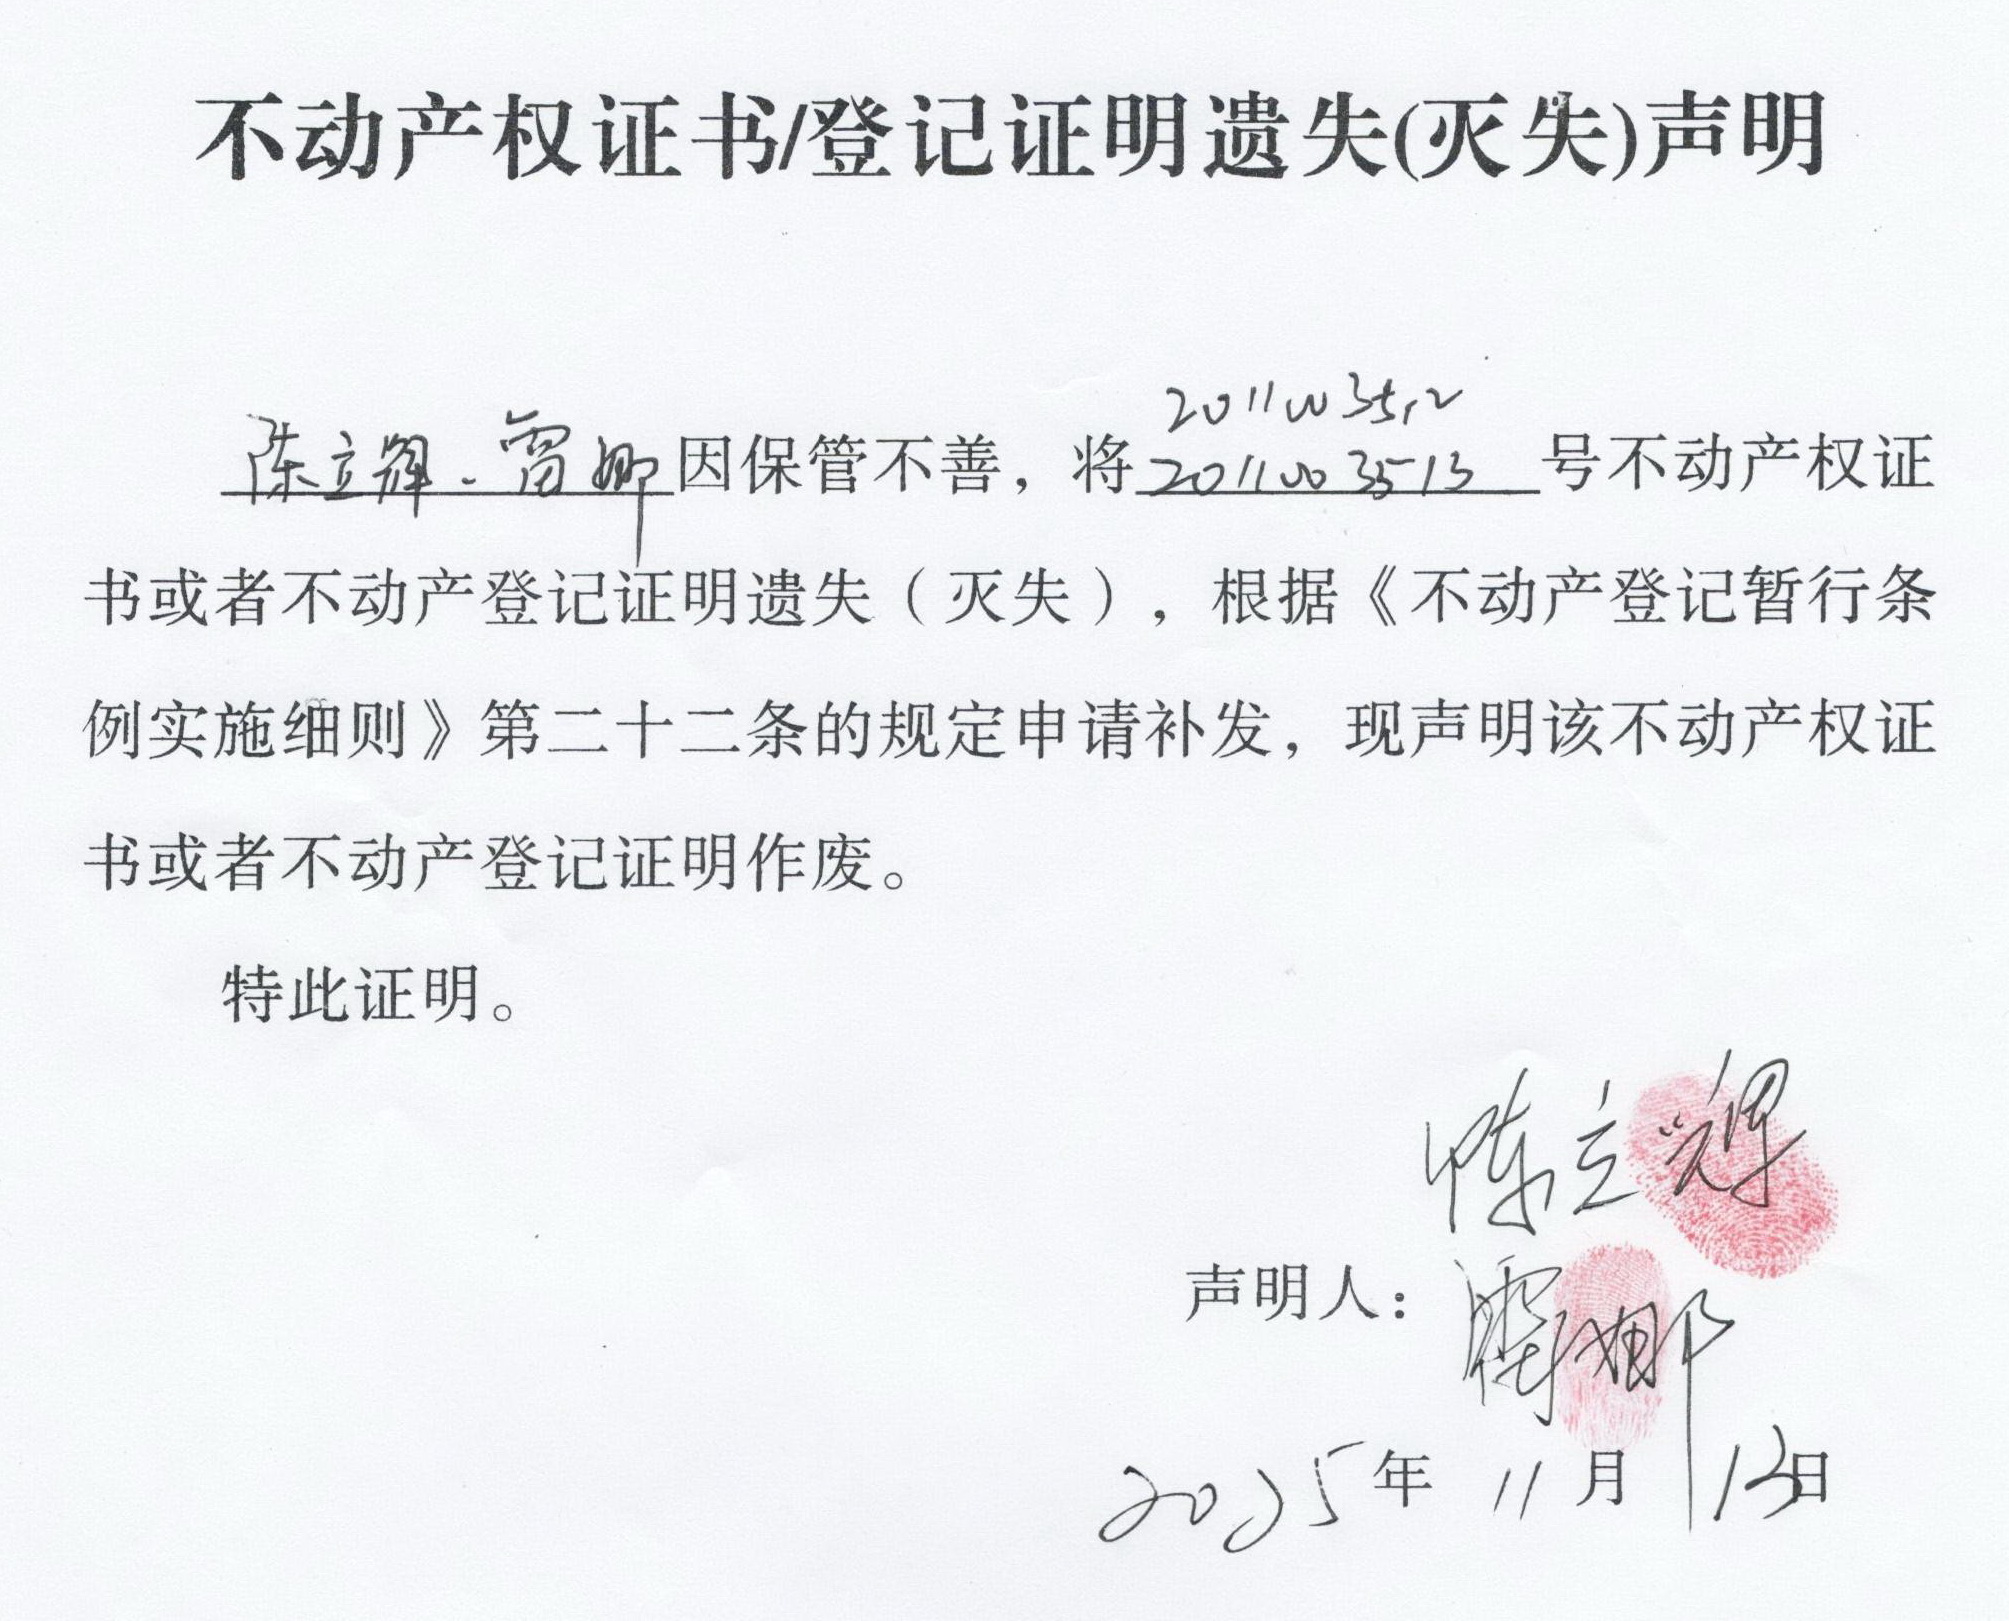 不动产权证书/登记证明遗失(灭失)声明
2011003512
陈立辉、雷娜因保管不善，将2011003513号不动产权证
书或者不动产登记证明遗失（灭失），根据《不动产登记暂行条
例实施细则》第二十二条的规定申请补发，现声明该不动产权证
书或者不动产登记证明作废。
特此证明。
陈立辉
声明人：雷娜
2025年11月13日